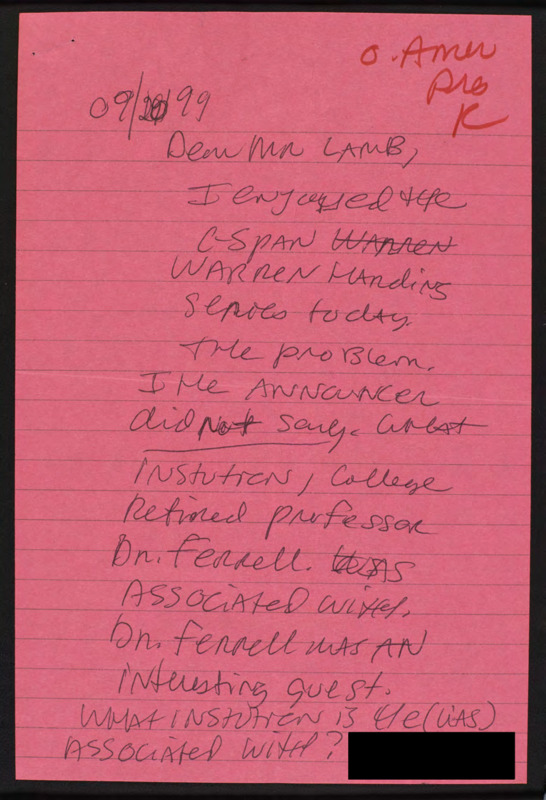 O. Amer
Pro
K
09/20/99
Dear Mr LAMB,
I enjoyed the
C-SPAN WARREN
WARREN HARDING
series today.
the problem.
I He ANNOUNCER
did Not say. what
INSTUTION, College
Retired professor
Dr. Ferrell. WAS
ASSOCIATED with.
Dr. Ferrell WAS AN
interesting guest.
WHAT INSTUTION is He (WAS)
ASSOCIATED WITH?